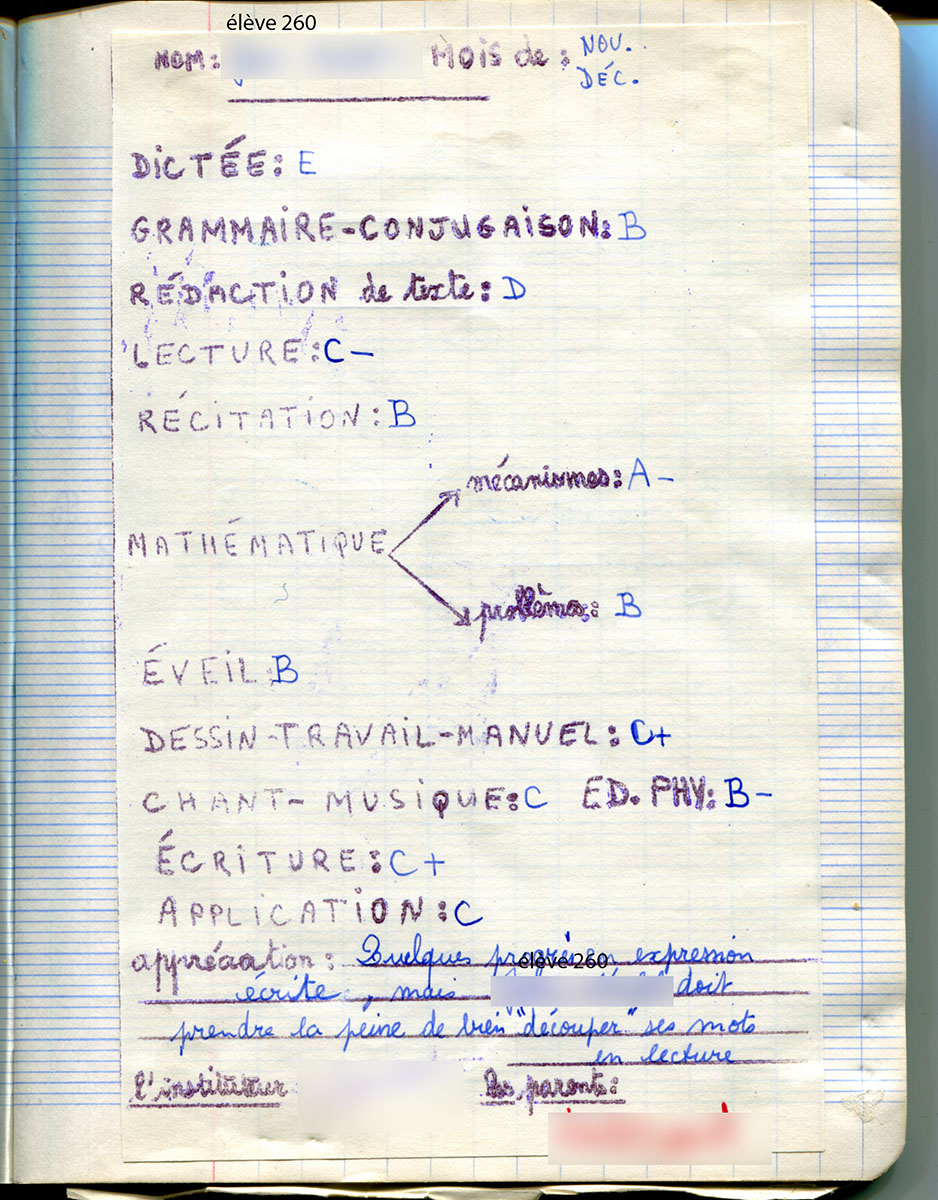 élève 260
NOM: Mois de : NOV.
DÉC.
DICTÉE: E
GRAMMAIRE-CONJUGAISON: B
RÉDACTION de texte: D
LECTURE: C-
RÉCITATION: B
mécanismes: A-
MATHÉMATIQUE
problèmes: B
ÉVEIL B
DESSIN-TRAVAIL-MANUEL: C+
CHANT-MUSIQUE: C ED. PHY: B-
ÉCRITURE: C+
APPLICATION: C
appréciation: Quelques progrès en expression
élève 260
écrite, mais doit
prendre la peine de bien "découper" ses mots
en lecture
l'instituteur Les parents: